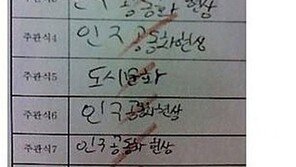 인구 공동화 현상
주관식4 인구 공동화현상
주관식5 도시문화
주관식6 인구공동화현상
주관식7 인구공동화 현상